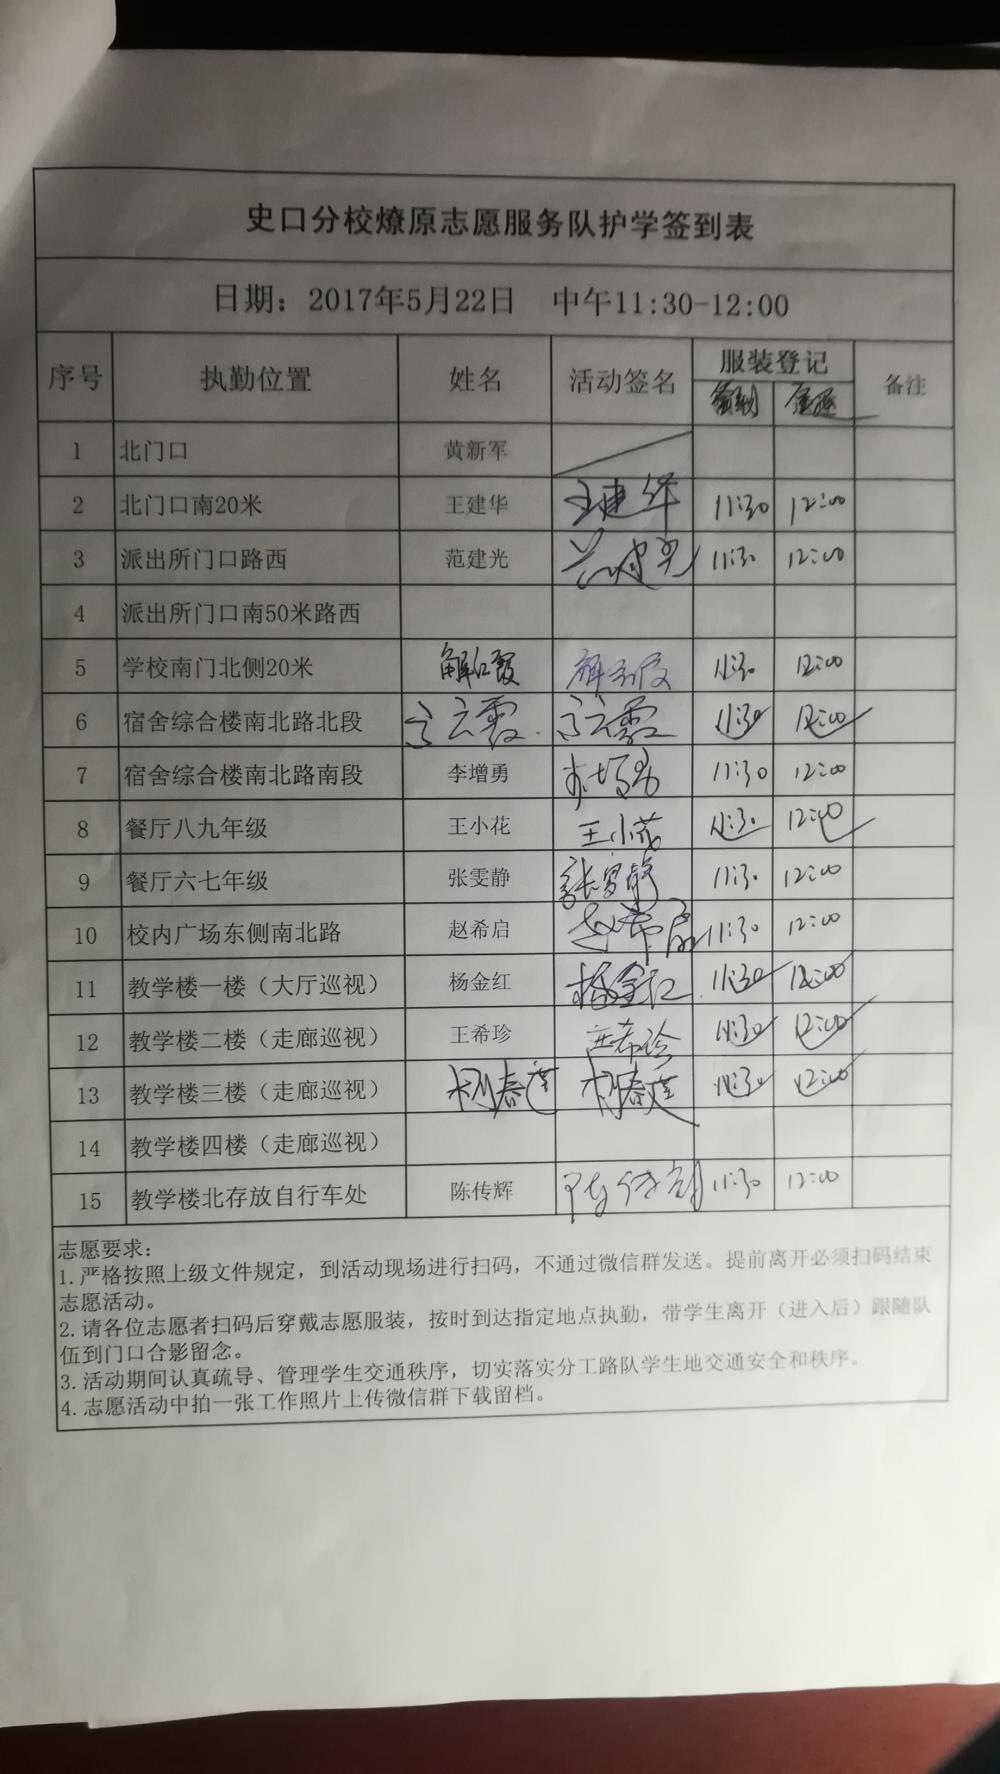 史口分校燎原志愿服务队护学签到表
日期：2017年5月22日 中午11:30-12:00
序号 执勤位置 姓名 活动签名 服装登记 备注
1 北门口 黄新军
2 北门口南20米 王建华 王建华 11:30 12:00
3 派出所门口路西 范建光 范建光 11:30 12:00
4 派出所门口南50米路西
5 学校南门北侧20米 解红霞 11:30 12:00
6 宿舍综合楼南北路北段 11:30 12:00
7 宿舍综合楼南北路南段 李增勇 李增勇 11:30 12:00
8 餐厅八九年级 王小花 王小花 11:30 12:00
9 餐厅六七年级 张雯静 張雯静 11:30 12:00
10 校内广场东侧南北路 赵希启 赵希启 11:30 12:00
11 教学楼一楼（大厅巡视） 杨金红 杨金红 11:30 12:00
12 教学楼二楼（走廊巡视） 王希珍 王希珍 11:30 12:00
13 教学楼三楼（走廊巡视） 11:30 12:00
14 教学楼四楼（走廊巡视）
15 教学楼北存放自行车处 陈传辉 陈传辉 11:30 12:00
志愿要求：
1.严格按照上级文件规定，到活动现场进行扫码，不通过微信群发送。提前离开必须扫码结束
志愿活动。
2.请各位志愿者扫码后穿戴志愿服装，按时到达指定地点执勤，带学生离开（进入后）跟随队
伍到门口合影留念。
3.活动期间认真疏导、管理学生交通秩序，切实落实分工路队学生地交通安全和秩序。
4.志愿活动中拍一张工作照片上传微信群下载留档。